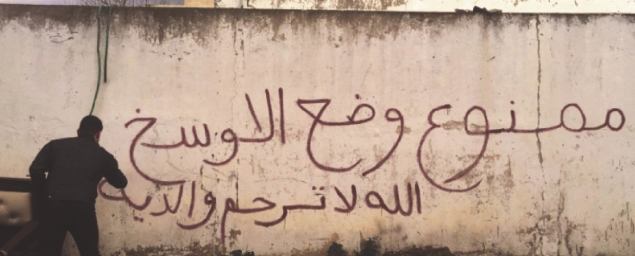 ممنوع وضع الاوسخ
الله لا ترحم والديه